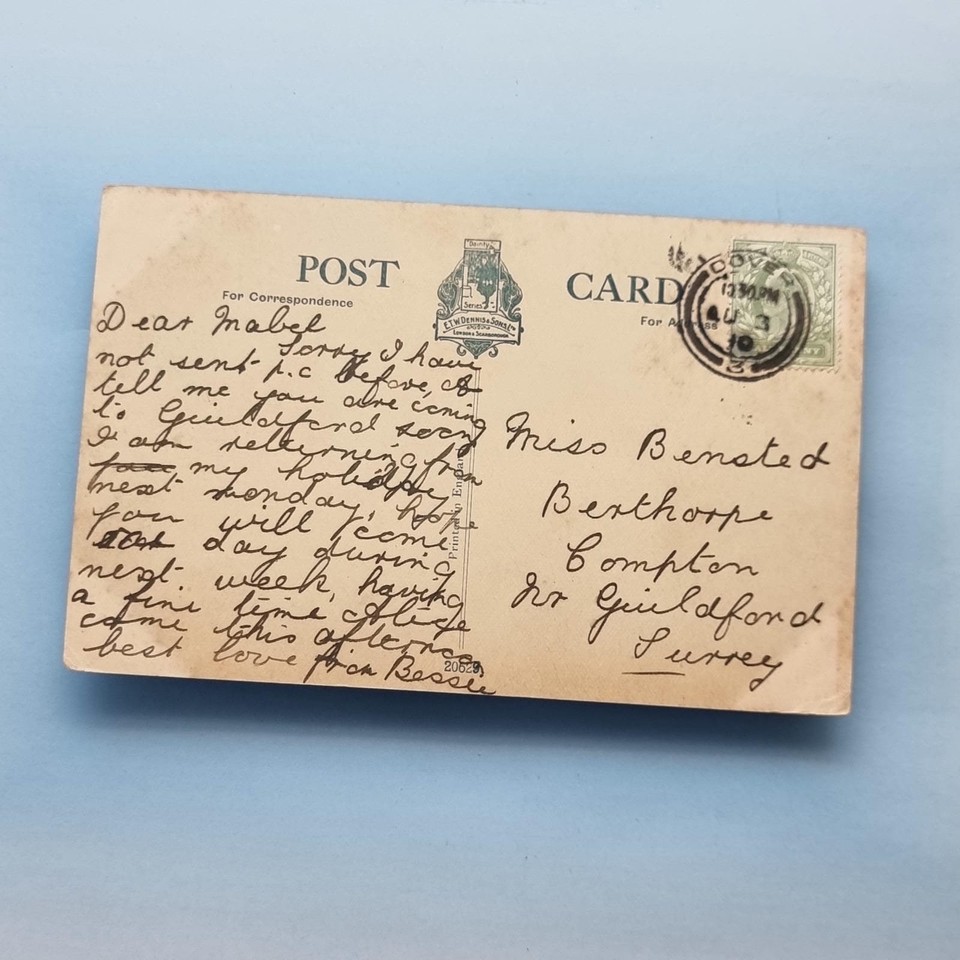 POST CARD
For Correspondence
For Address
Dainty
Series
E.T.W. DENNIS & SONS Ltd
LONDON & SCARBOROUGH
DOVER
12 30 PM
AU 3
10
3
Dear Mabel
Sorry I have
not sent p.c before,
tell me you are coming
to Guildford soon
I am returning from
my holiday
next monday, hope
you will come
day during
next week, having
a fine time
came this afternoon
best love from Bessie
Printed in England
20629
Miss Bensted
Berthorpe
Compton
Nr Guildford
Surrey